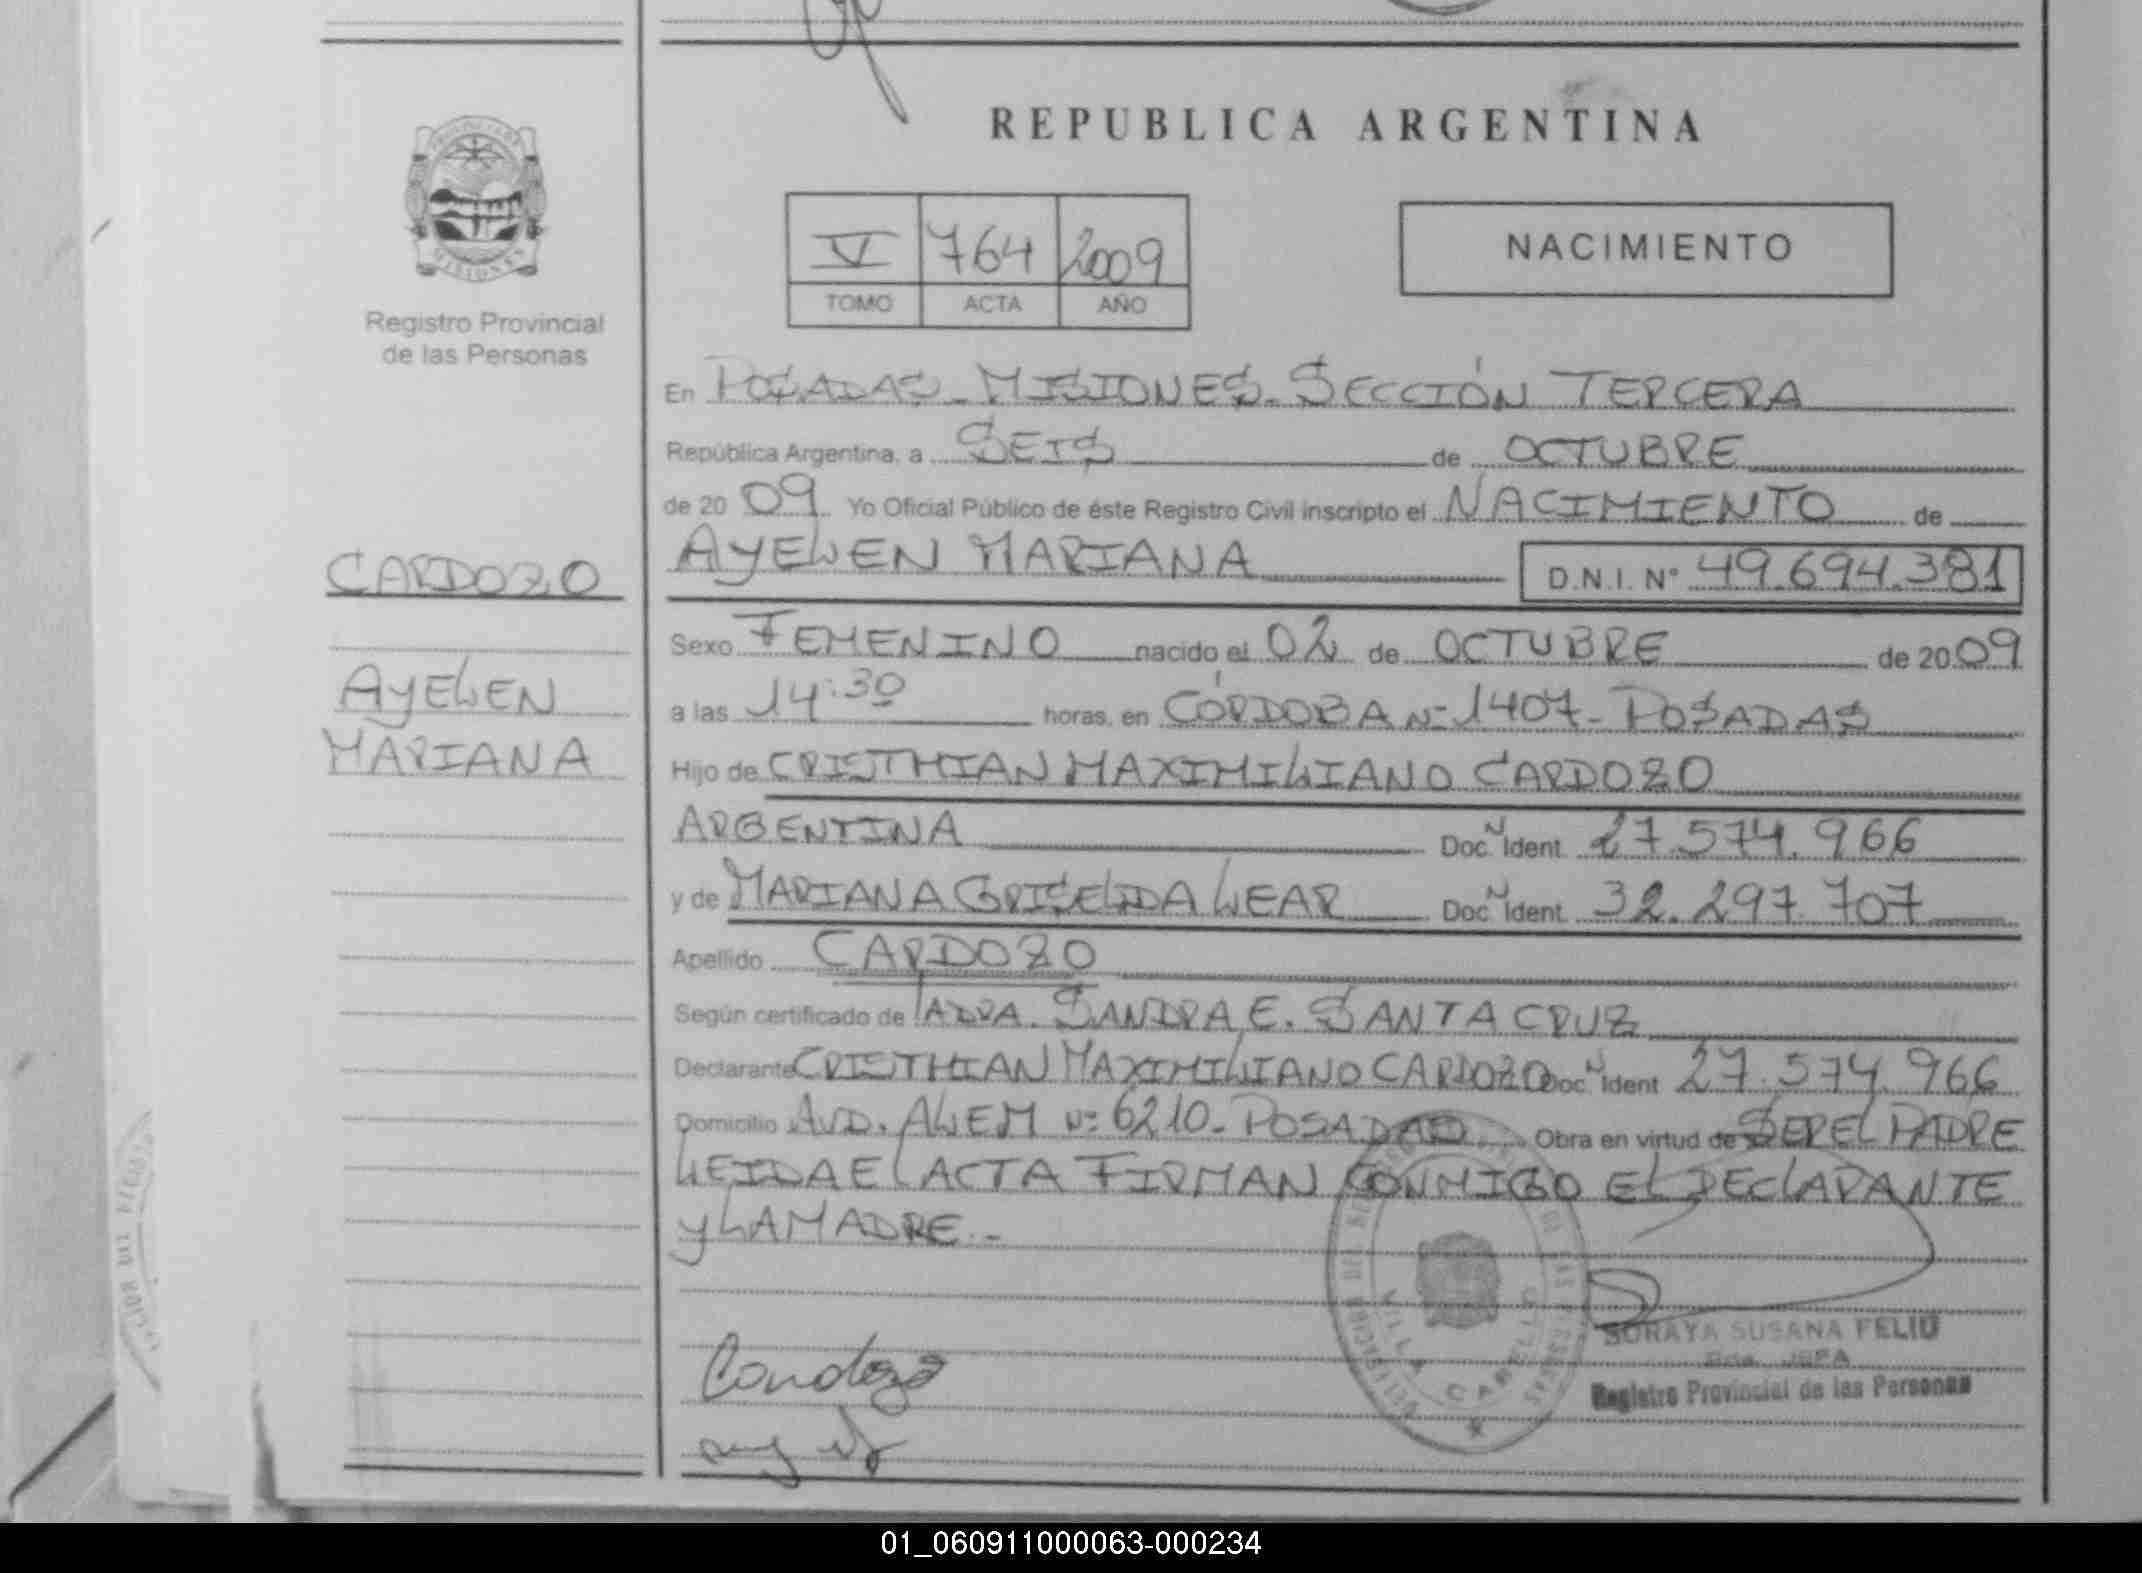 PROVINCIA DE
MISIONES
Registro Provincial
de las Personas
CARDOZO
AYELEN
MARIANA
REPUBLICA ARGENTINA
V 764 2009
TOMO ACTA AÑO
NACIMIENTO
En POSADAS - MISIONES - SECCIÓN TERCERA
República Argentina, a SEIS de OCTUBRE
de 2009 Yo Oficial Público de éste Registro Civil inscripto el NACIMIENTO de
AYELEN MARIANA D.N.I. Nº 49.694.381
Sexo FEMENINO nacido el 02 de OCTUBRE de 2009
a las 14:30 horas, en CÓRDOBA Nº 1407 - POSADAS
Hijo de CRISTHIAN MAXIMILIANO CARDOZO
ARGENTINA Doc. N Ident. 27.574.966
y de MARIANA GRISELDA LEAR Doc. N Ident. 32.297.707
Apellido CARDOZO
Según certificado de LA DRA. SANDRA E. SANTA CRUZ
Declarante CRISTHIAN MAXIMILIANO CARDOZO Doc. N Ident 27.574.966
Domicilio AVD. ALEM Nº 6210 - POSADAS Obra en virtud de SER EL PADRE
LEIDA EL ACTA FIRMAN CONMIGO EL DECLARANTE
Y LA MADRE.-
VILLA CABELLO
Cardozo
SORAYA SUSANA FELIU
JEFA
Registro Provincial de las Personas
01_060911000063-000234